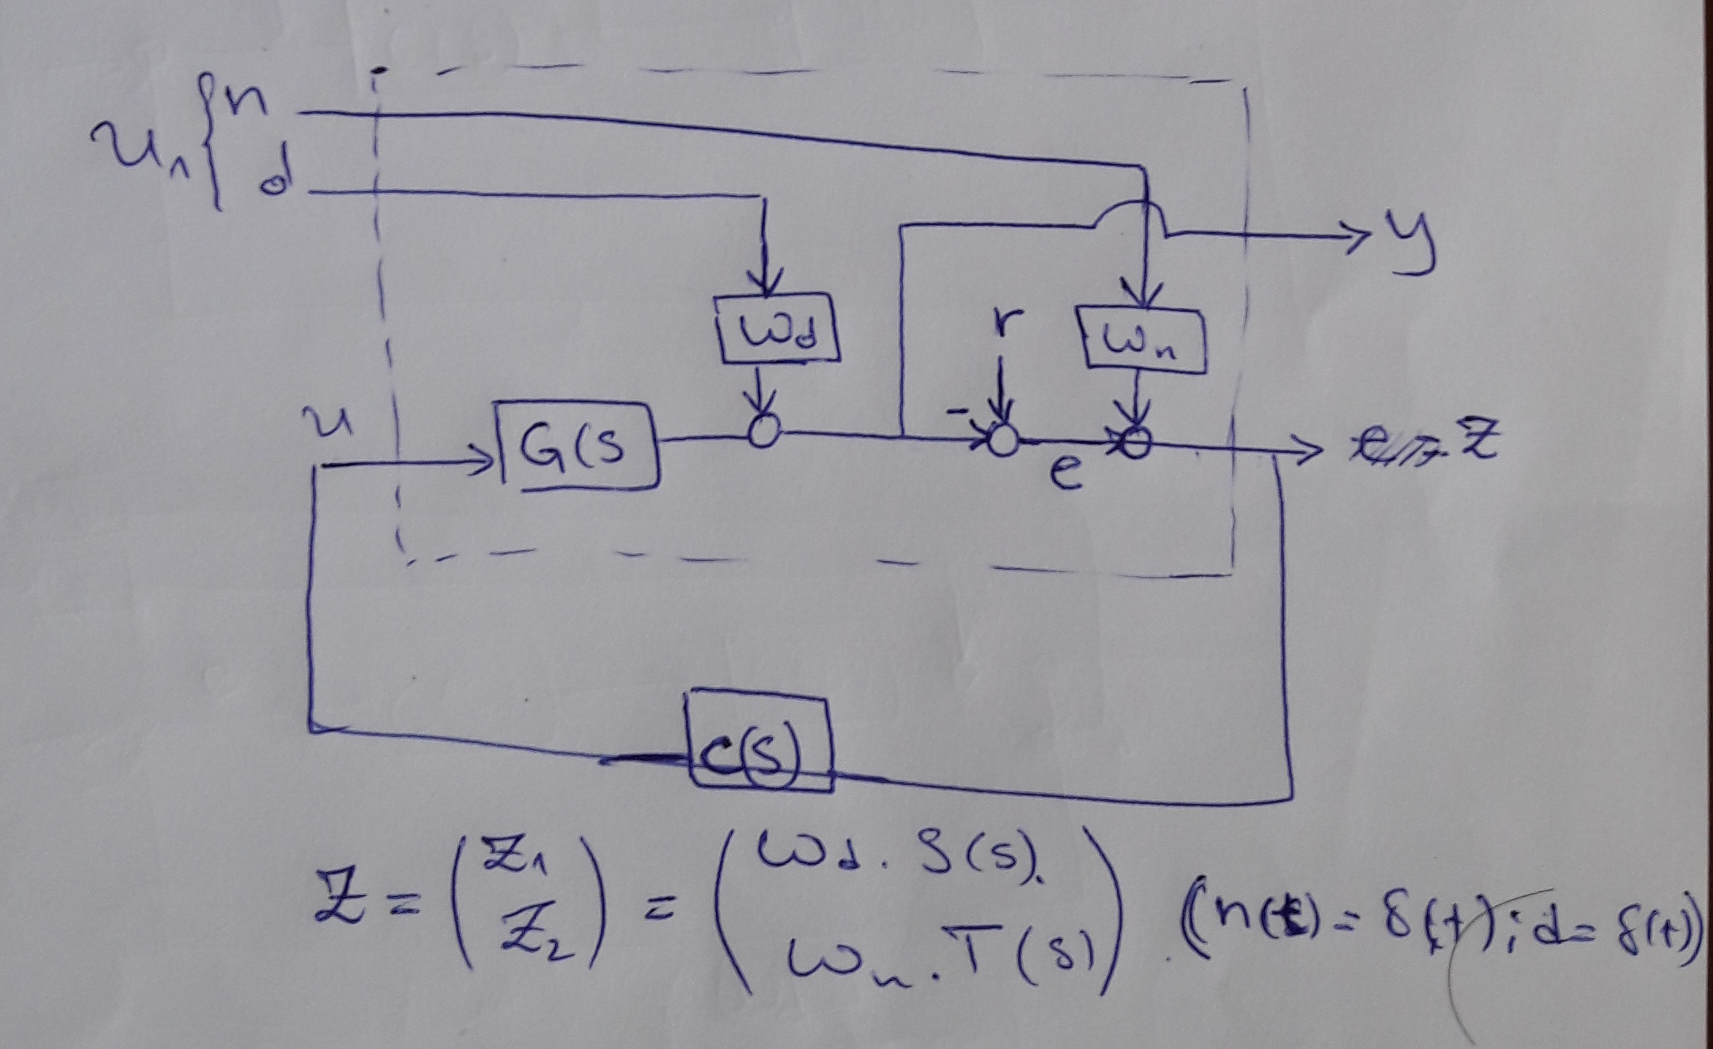 u₁ { n
d
y
ωd
r
ωn
u
G(s
-
e
z
c(s)
Z = (z₁ z₂) = (ωd . S(s). ωn . T(s)) . (n(t) = δ(t); d = δ(t))